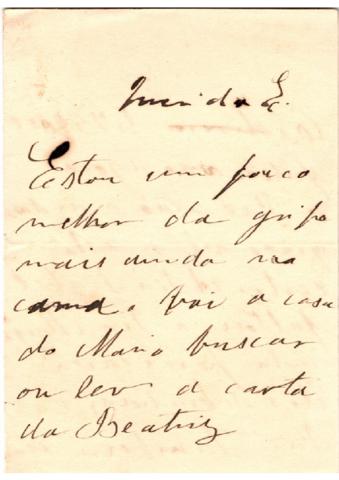 Querida E.
Estou um pouco
melhor da gripe
mais ainda na
cama. Vai a casa
do Mario buscar
ou ler a carta
da Beatriz